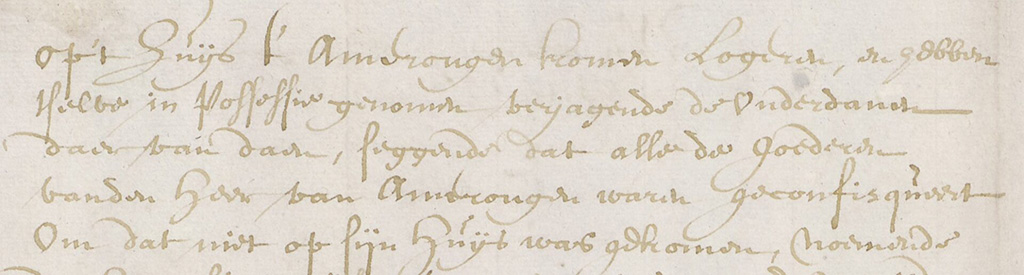 op't Huijs t' Amerongen komen Logeren, en hebben
tselve in Possessie genomen verjagende de Onderdanen
daer van daen, seggende dat alle de goederen
vanden Heer van Amerongen waren geconfisqueert
Om dat niet op sijn Huijs was gekomen, Noemende